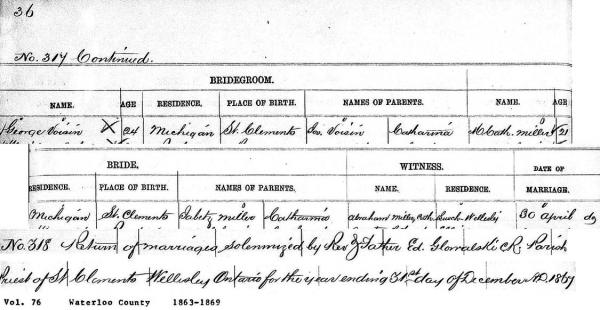 36
No. 317 Continued.
BRIDEGROOM.
NAME. AGE RESIDENCE. PLACE OF BIRTH. NAMES OF PARENTS. NAME. AGE
George Voisin 24 Michigan St. Clements Jos. Voisin Catharina M Cath. Miller 21
BRIDE, WITNESS. DATE OF
RESIDENCE. PLACE OF BIRTH. NAMES OF PARENTS. NAME. RESIDENCE. MARRIAGE.
Michigan St. Clements miller Catharina Abraham Miller, Wellesley 30 April
No. 318 Return of marriages solemnized by Rev. Father Ed. Glowalski C.R. Parish
Priest of St Clements Wellesley Ontario for the year ending 31st day of December A.D. 1867
Vol. 76 Waterloo County 1863-1869